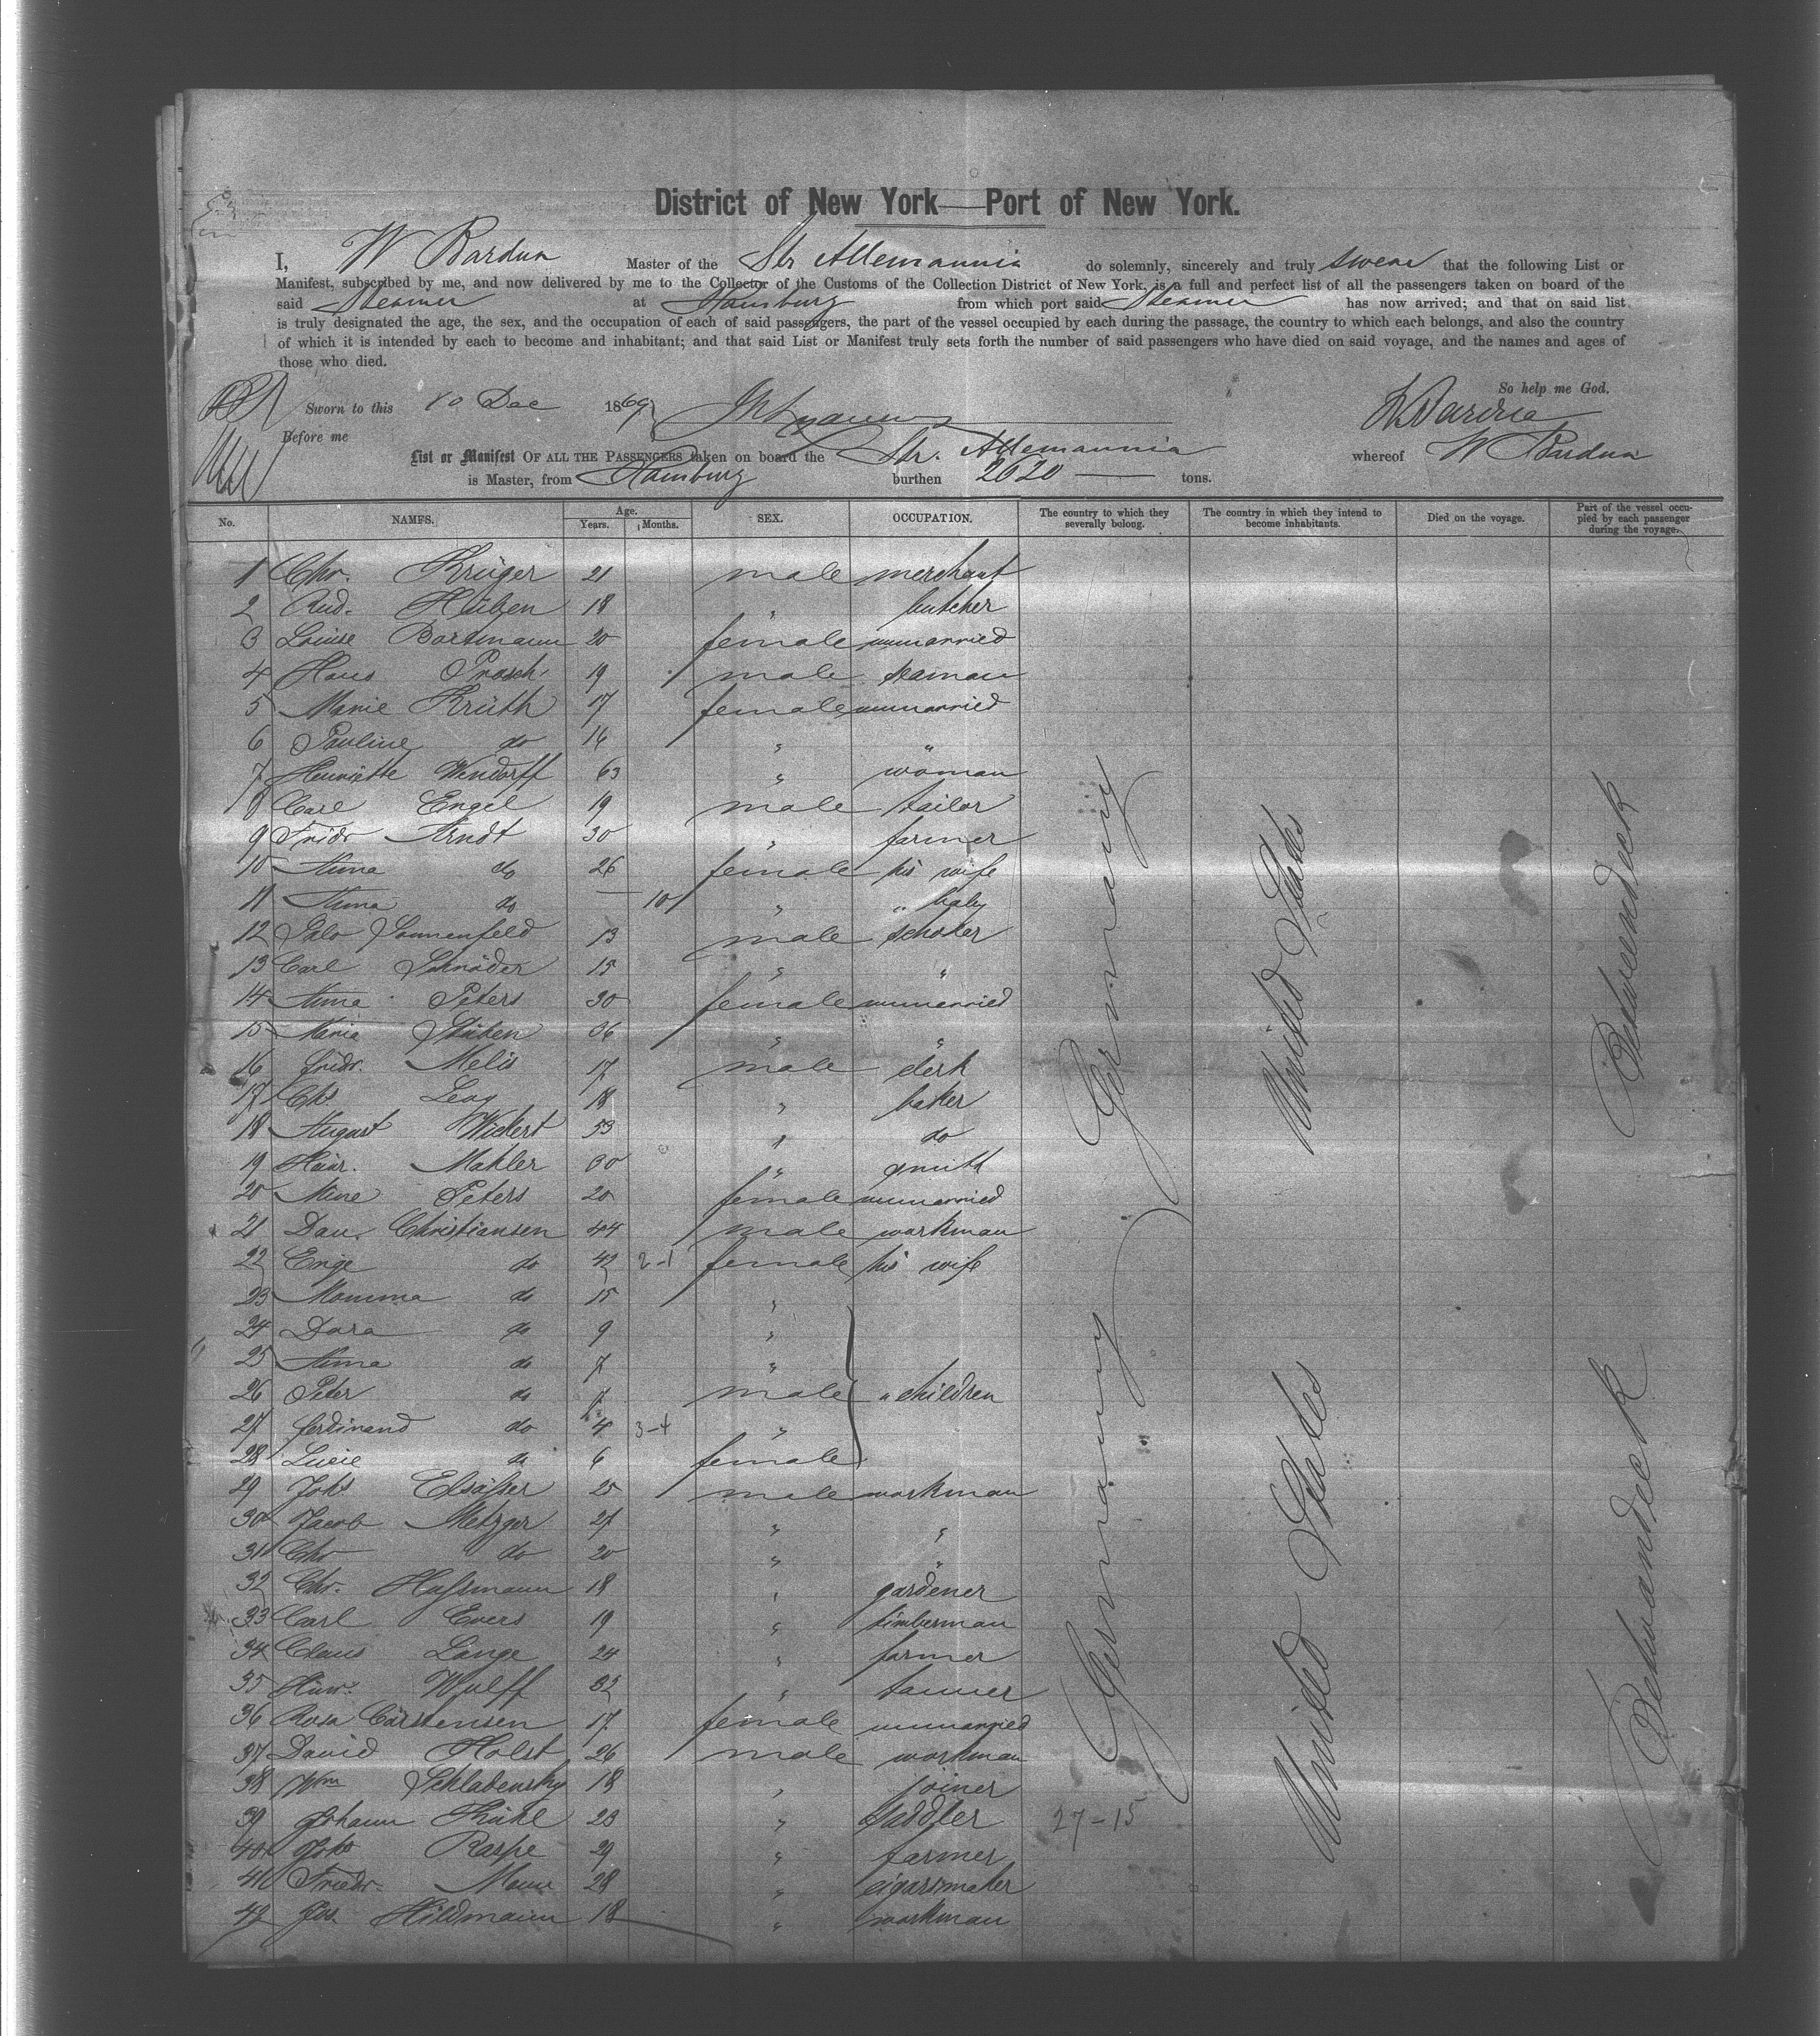 District of New York—Port of New York.
I, W Bardua Master of the Str Allemannia do solemnly, sincerely and truly swear that the following List or
Manifest, subscribed by me, and now delivered by me to the Collector of the Customs of the Collection District of New York, is a full and perfect list of all the passengers taken on board of the
said Steamer at Hamburg from which port said Steamer has now arrived; and that on said list
is truly designated the age, the sex, and the occupation of each of said passengers, the part of the vessel occupied by each during the passage, the country to which each belongs, and also the country
of which it is intended by each to become and inhabitant; and that said List or Manifest truly sets forth the number of said passengers who have died on said voyage, and the names and ages of
those who died.
So help me God.
Sworn to this 10 Dec 1869 W Bardua
Before me
List or Manifest OF ALL THE PASSENGERS taken on board the Str. Allemannia whereof W Bardua
is Master, from Hamburg burthen 2620 tons.
No. NAMES. Age. Years. Months. SEX. OCCUPATION. The country to which they severally belong. The country in which they intend to become inhabitants. Died on the voyage. Part of the vessel occupied by each passenger during the voyage.
1 Chr. Krüger 21 male merchant
2 Rud. 18 " butcher
3 Louise Bortmann 20 female unmarried
4 Hans Prosch 19 male seaman
5 Marie Krüth 17 female unmarried
6 Pauline do 16 " "
7 Henriette Wendorff 63 " woman
8 Carl Engel 19 male tailor
9 Fridr Arndt 30 " farmer
10 Anna do 26 female his wife
11 Anna do — 10 " " baby
12 Sonnenfeld 13 male scholer
13 Carl Schröder 15 " "
14 Anna Peters 30 female unmarried
15 Maria Stüben 36 " "
16 Fridr. Melis 17 male clerk
17 Chs Levy 18 " baker
18 August Wickert 53 " do
19 Heinr. Mahler 30 " smith
20 Mine Peters 20 female unmarried
21 Dau. Christiansen 44 male workman
22 Enge do 42 2-1 female his wife
23 Momma do 15 "
24 Dora do 9 "
25 Anna do 7 "
26 Peter do 7 male " children
27 Ferdinand do 4 3-4 "
28 Lucie do 6 female
29 Johs Elsäßer 25 male workman
30 Jacob Metzger 27 " "
31 Chr do 20 " "
32 Chr. Haßmann 18 " gardener
33 Carl Evers 19 " timberman
34 Claus Lange 24 " farmer
35 Hinr. Wulff 32 " tanner
36 Rosa Carstensen 17 female unmarried
37 David Holst 26 male workman
38 Wm Schlabensky 18 " joiner
39 Johann 23 " saddler 27-15
40 Johs Raspe 29 " farmer
41 Friedr. Mann 28 " cigarsmaker
42 Jos. Hildmann 18 " workman
Germany
United States
Betweendeck
Germany
United States
Betweendeck